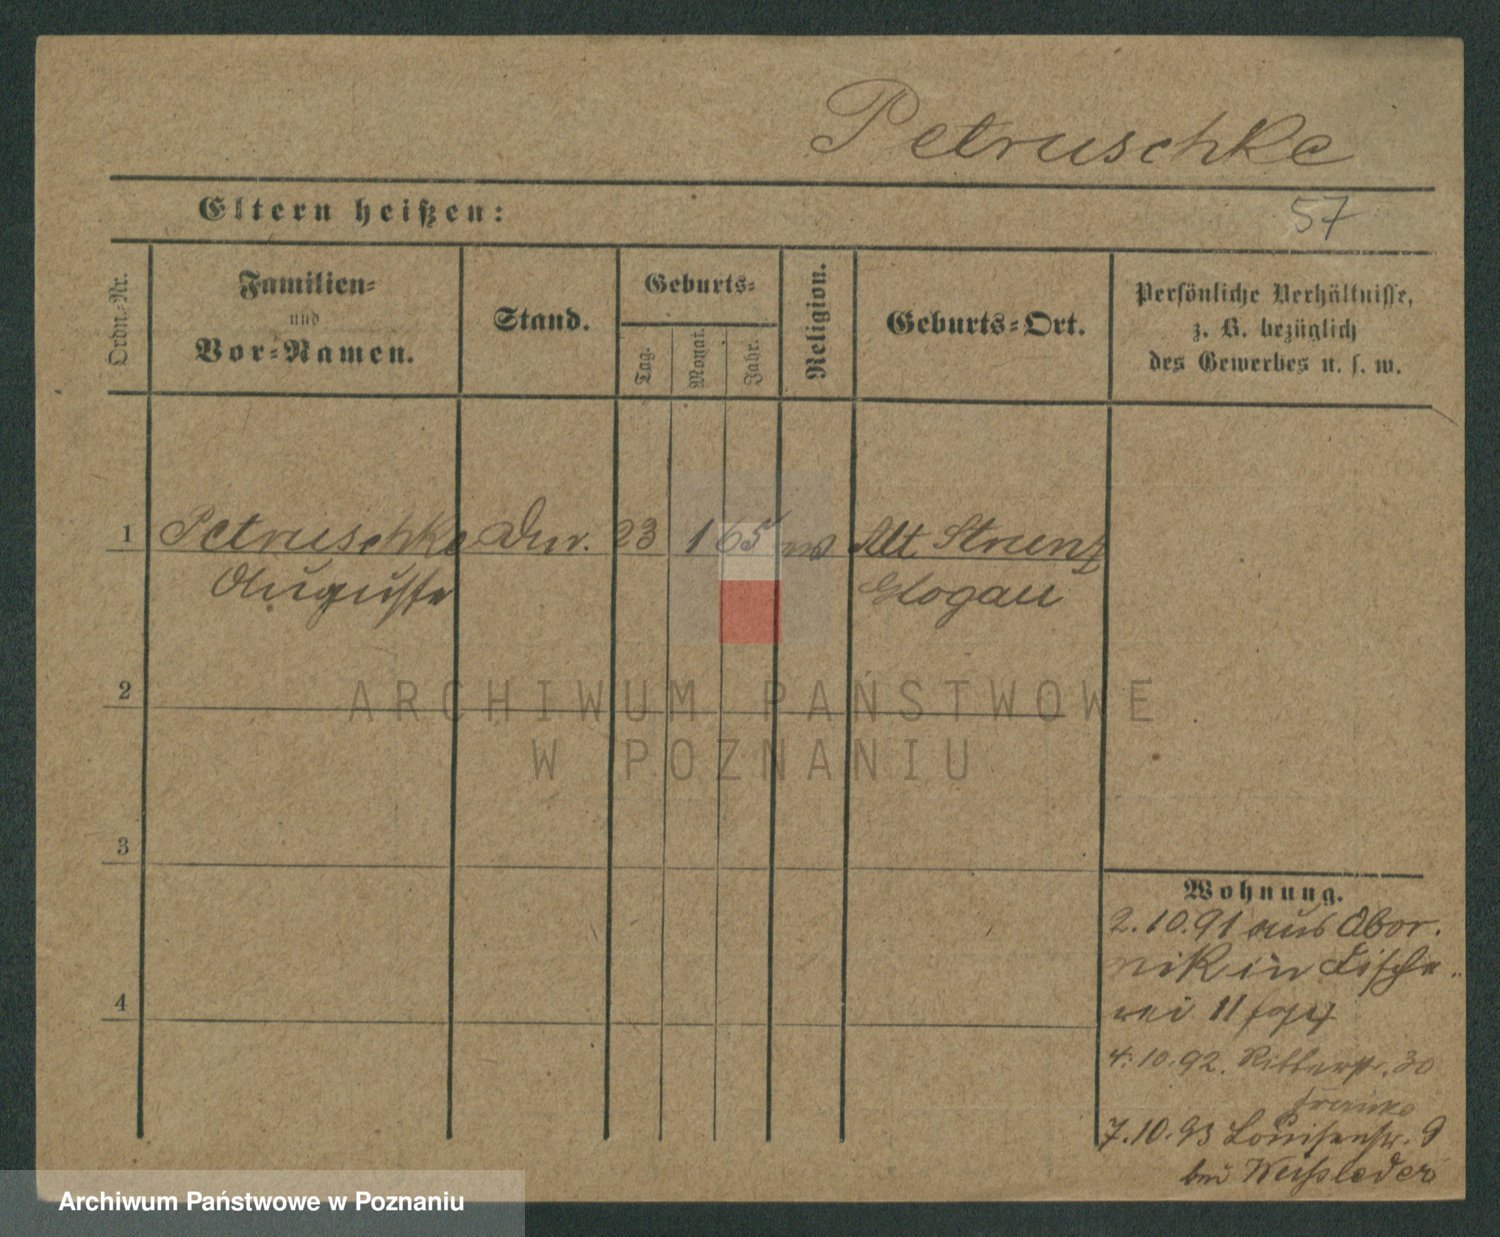 Petruschke
Eltern heißen:
57
Ordn.-Nr.
Familien-
und
Vor-Namen.
Stand.
Geburts-
Tag.
Monat.
Jahr.
Religion.
Geburts-Ort.
Persönliche Verhältnisse,
z. B. bezüglich
des Gewerbes u. s. w.
1 Petruschke 23 1 65 Alt Strunz
Auguste Glogau
2
ARCHIWUM PAŃSTWOWE
W POZNANIU
3
Wohnung.
2.10.91 aus Obor.
nik in Fische
rei 11
4
4.10.92. Ritterstr. 30
Franke
7.10.93 Louisenstr. 9
bei Weißleder
Archiwum Państwowe w Poznaniu